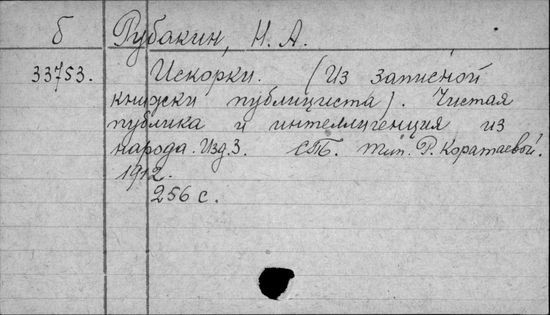 б Рубакин, Н. А.
33753. Искорки. (Из записной
книжки публициста). Чистая
публика и интеллигенция из
народа. Изд. 3. СПБ. тип. Р. Коратаевой.
1912.
256 с.